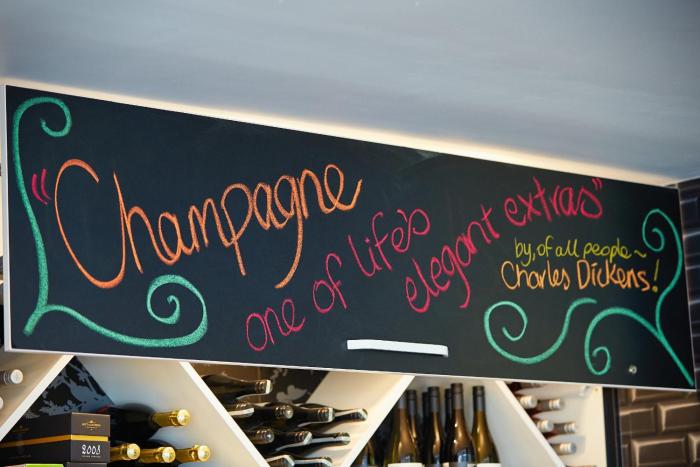 "Champagne
one of life's
elegant extras"
by, of all people~
Charles Dickens!
2008